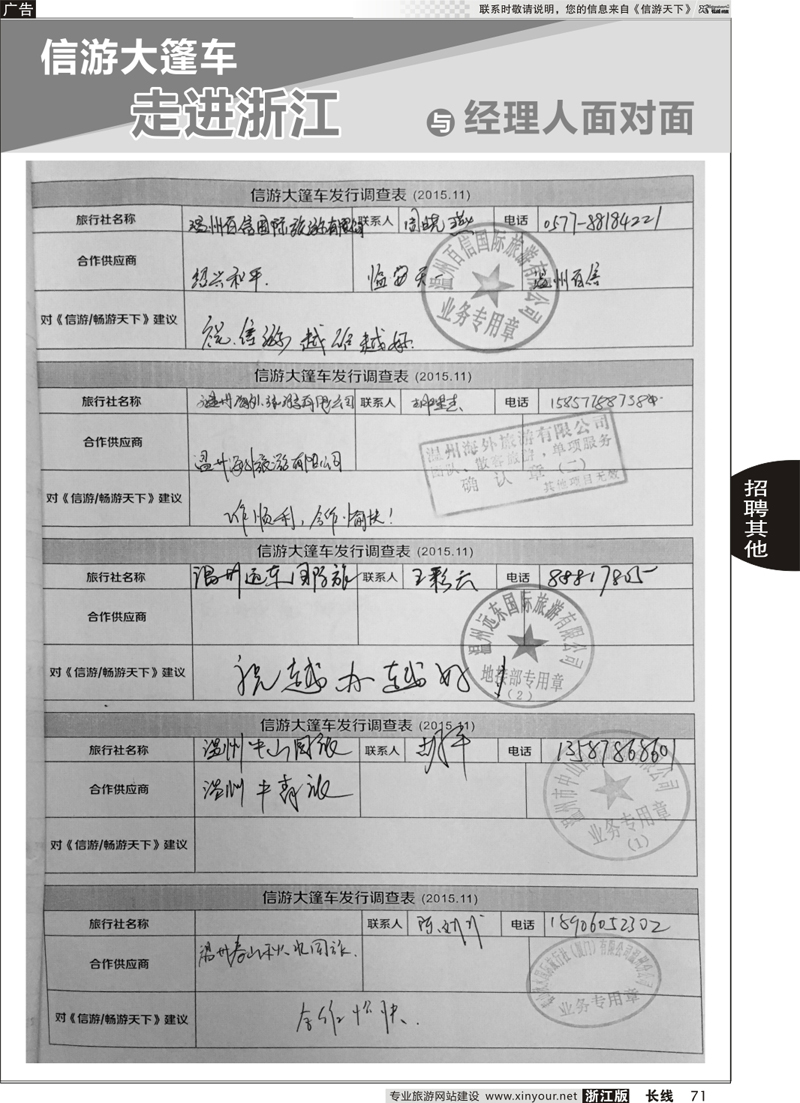 广告
联系时敬请说明，您的信息来自《信游天下》
信游大篷车
走进浙江 与 经理人面对面
信游大篷车发行调查表 (2015.11)
旅行社名称 温州百信国际旅游有限公司 联系人 周晓燕 电话 0577-88184221
合作供应商 绍兴和平. 临安天一 温州百信
对《信游/畅游天下》建议 祝信游越办越好.
温州百信国际旅游有限公司
业务专用章
信游大篷车发行调查表 (2015.11)
旅行社名称 温州海外旅游有限公司 联系人 电话
合作供应商 温州海外旅游有限公司
温州海外旅游有限公司
团队、散客旅游、单项服务
确认章(二)
其他项目无效
对《信游/畅游天下》建议 工作顺利，合作愉快！
信游大篷车发行调查表 (2015.11)
旅行社名称 温州远东国际旅 联系人 王彩云 电话 88817805
合作供应商
对《信游/畅游天下》建议 祝越办越好！
温州远东国际旅游有限公司
地接部专用章
(2)
信游大篷车发行调查表 (2015.11)
旅行社名称 温州中山国旅 联系人 电话 13587868601
合作供应商 温州中青旅
业务专用章
(1)
对《信游/畅游天下》建议
信游大篷车发行调查表 (2015.11)
旅行社名称 联系人 电话 18906052302
合作供应商 温州春山秋水国旅.
业务专用章
对《信游/畅游天下》建议 合作愉快.
招聘其他
专业旅游网站建设 www.xinyour.net 浙江版 长线 71